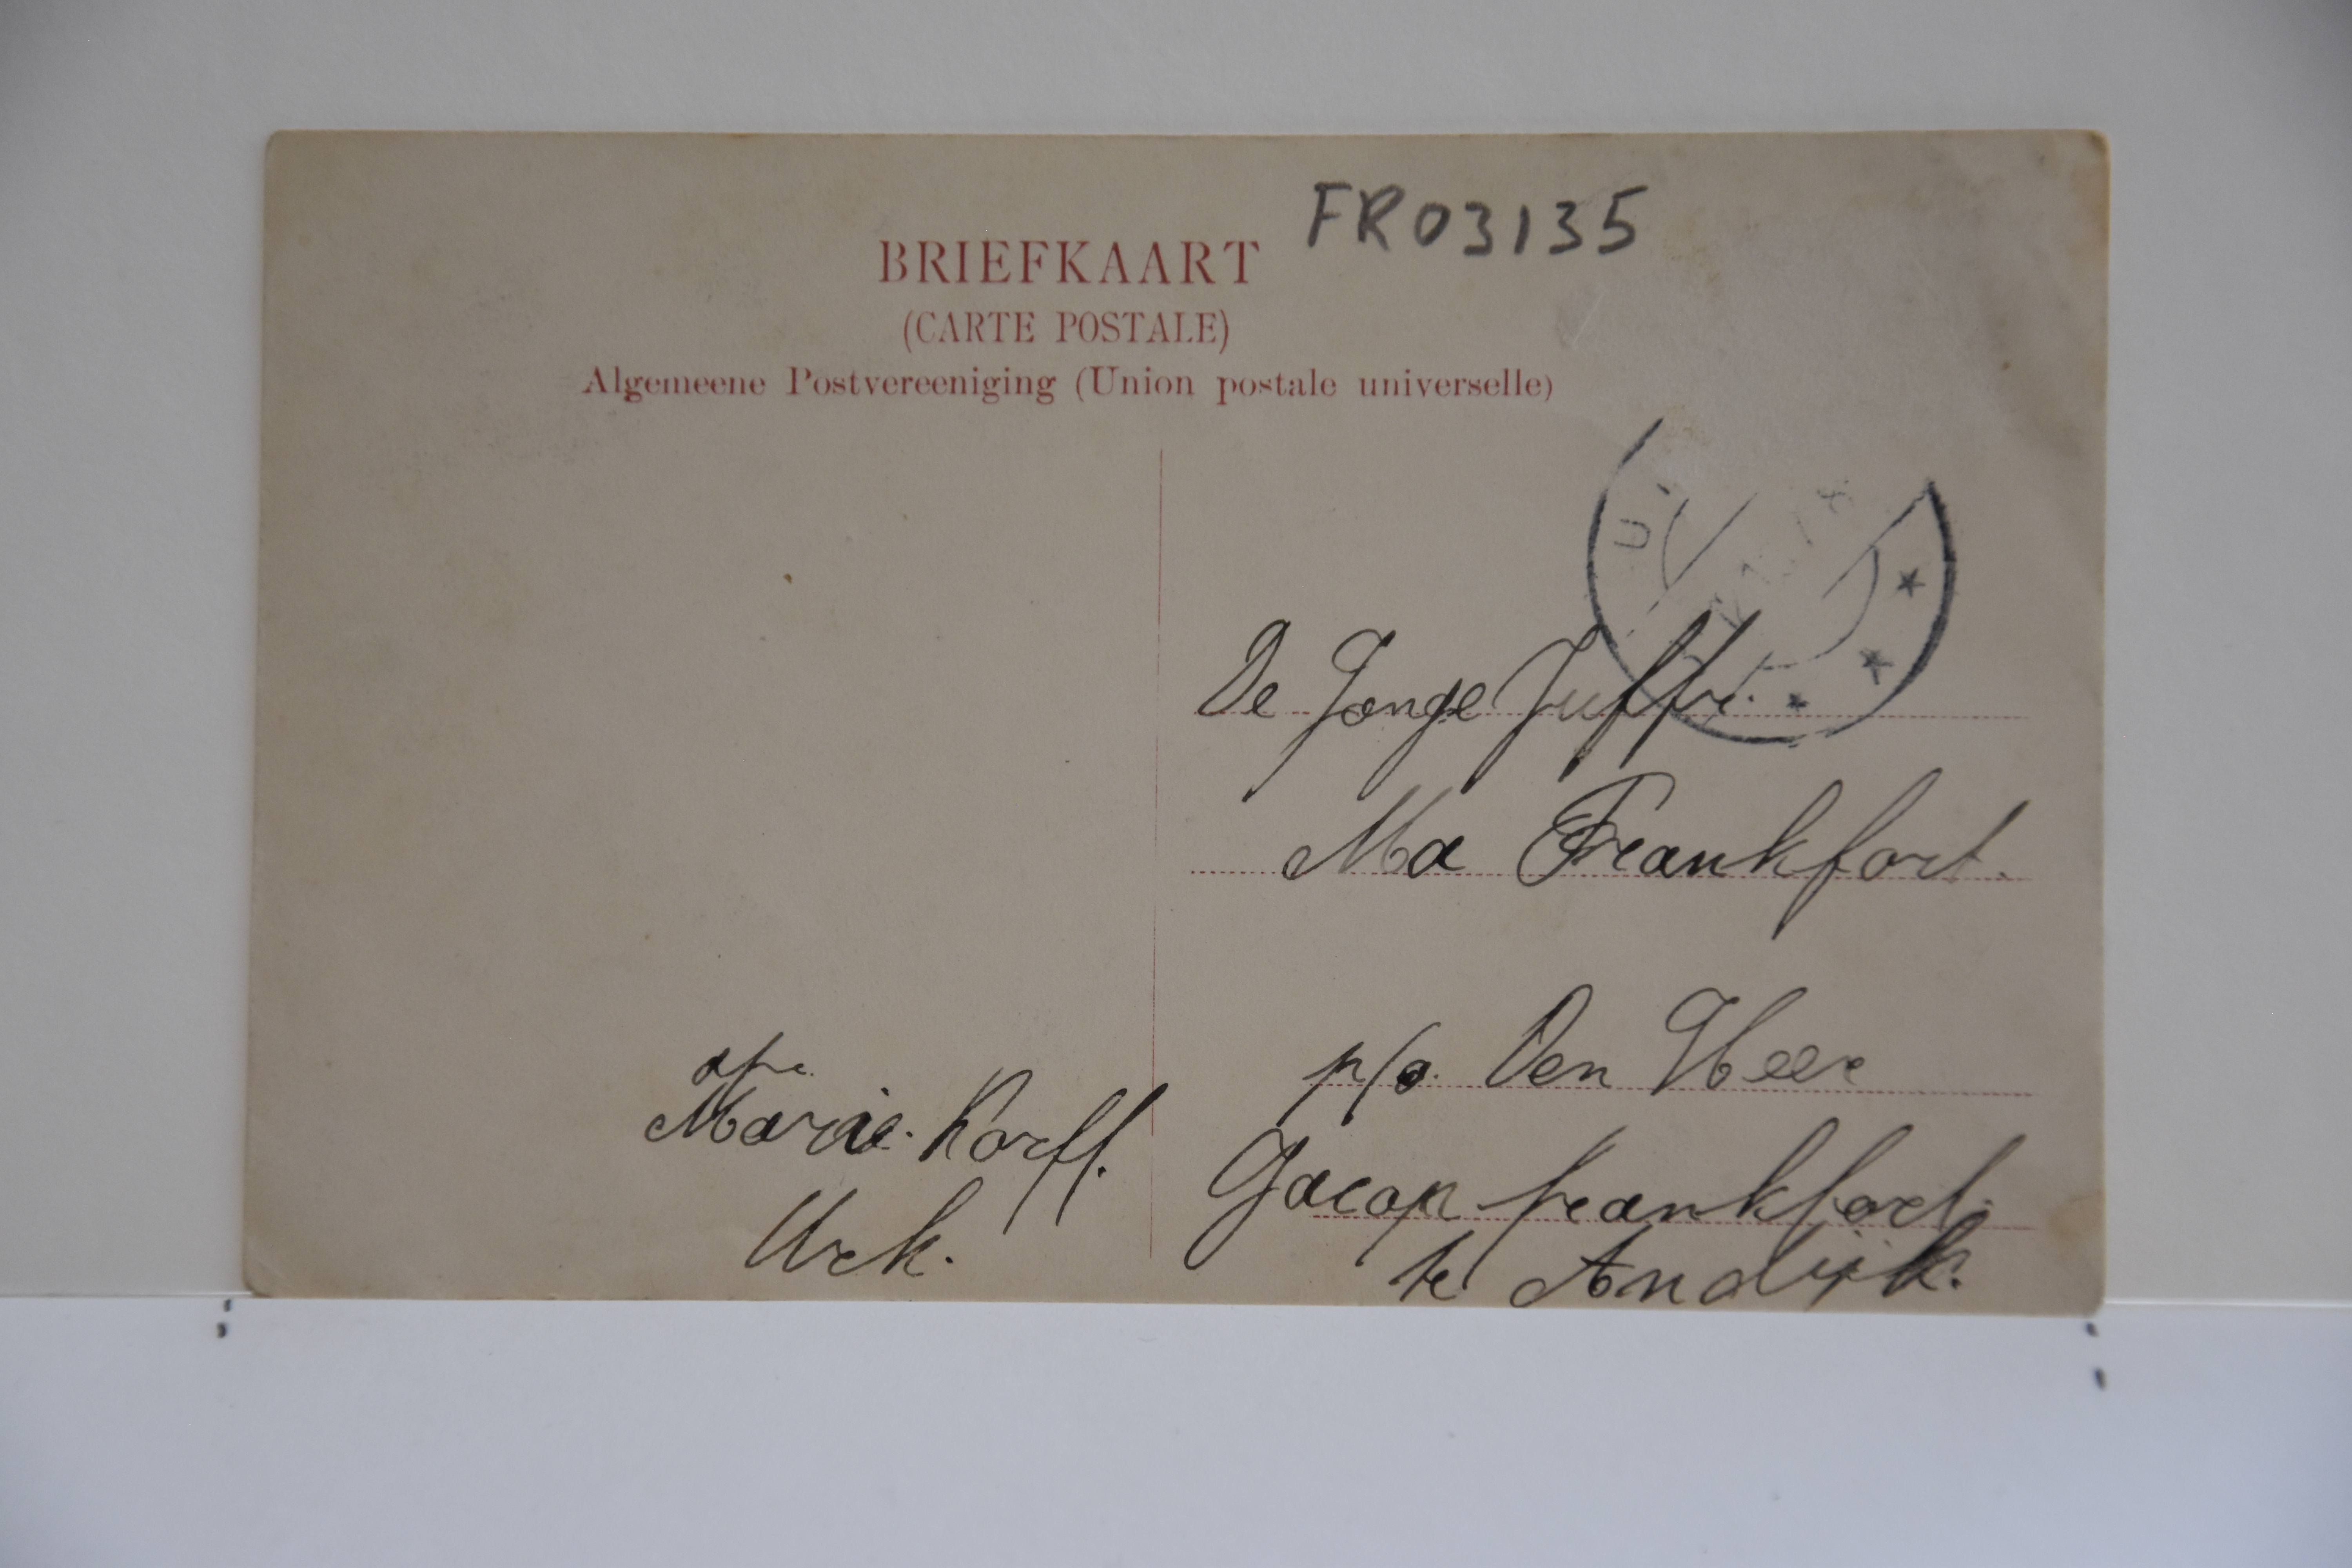 FR03135
BRIEFKAART
(CARTE POSTALE)
Algemeene Postvereeniging (Union postale universelle)
U
De Jonge Juffr.
Ma Frankfort.
p/a. Den Heer
Jacop frankfort.
te Andijk.
afz.
Marie Korff.
Urk.